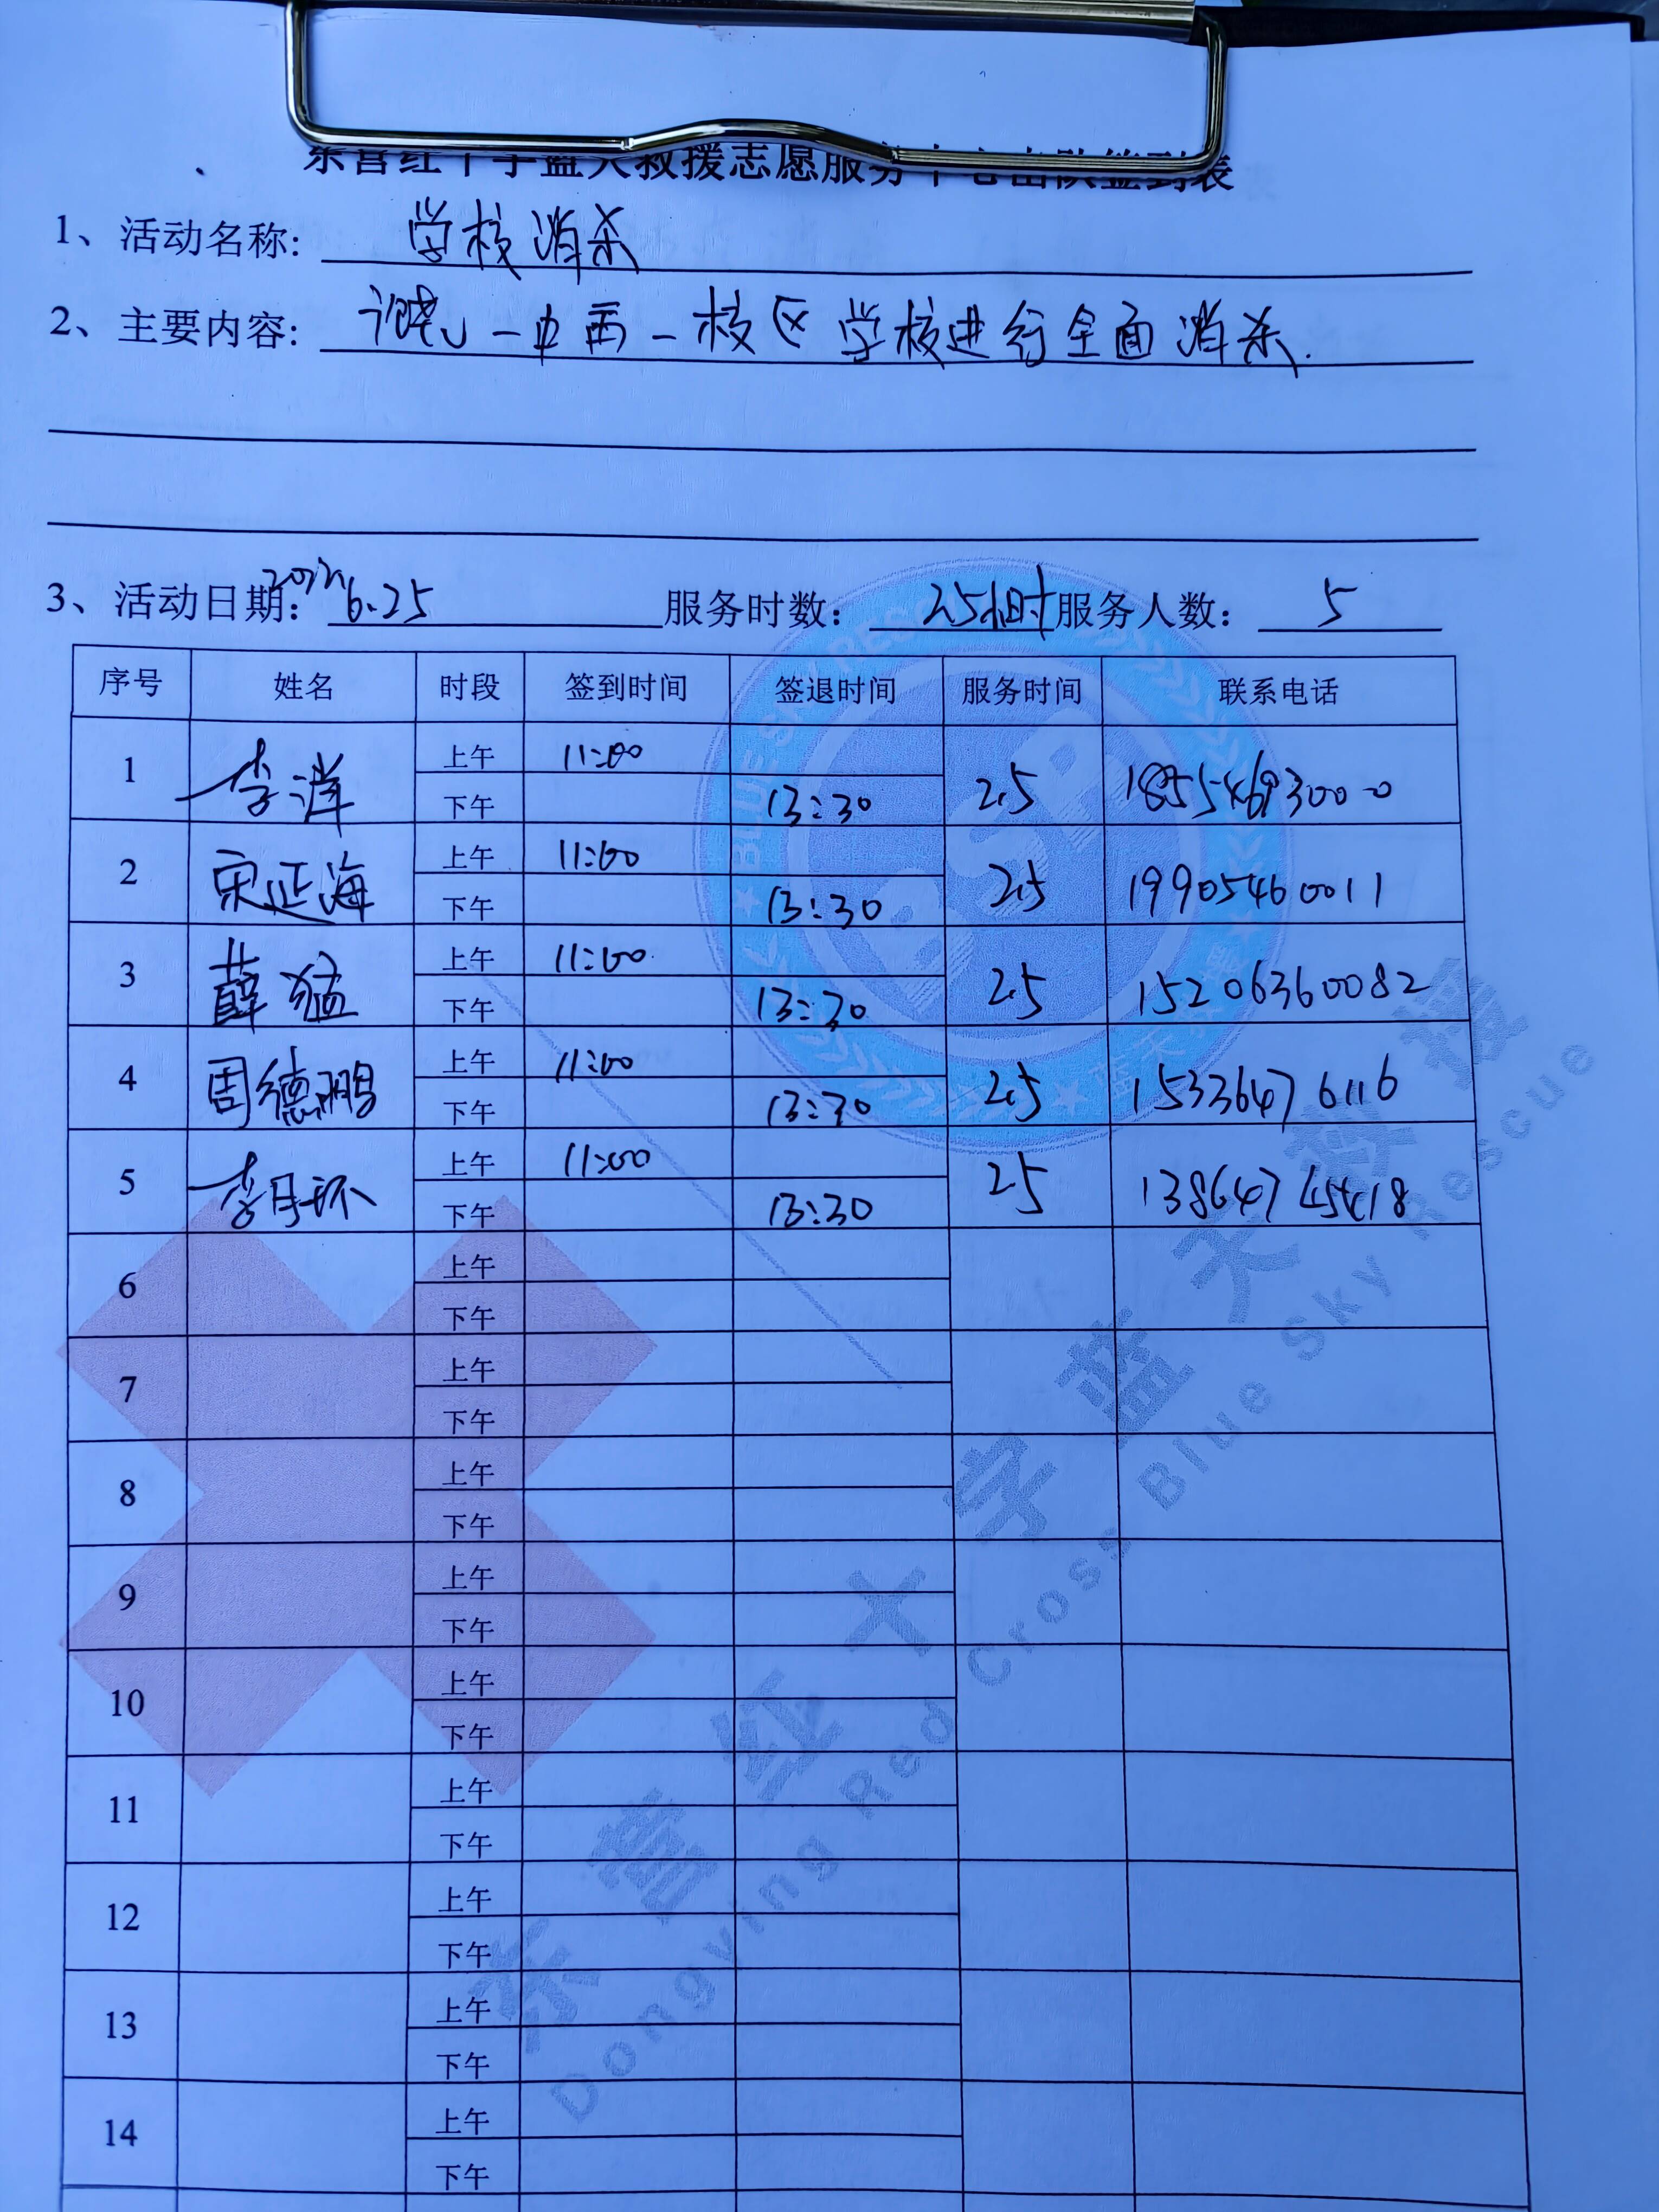 东营红十字蓝天救援志愿服务中心出队签到表
1、活动名称: 学校消杀
2、主要内容: 一中西一校区学校进行全面消杀.
3、活动日期: 6.25 服务时数: 2.5小时 服务人数: 5
序号 姓名 时段 签到时间 签退时间 服务时间 联系电话
1 李洋 上午 11:00 2.5 18554693000
下午 13:30
2 宋延海 上午 11:00 2.5 19905460011
下午 13:30
3 薛猛 上午 11:00 2.5 15206360082
下午 13:30
4 周德鹏 上午 11:00 2.5 15336476116
下午 13:30
5 李月环 上午 11:00 2.5 13864745418
下午 13:30
6 上午
下午
7 上午
下午
8 上午
下午
9 上午
下午
10 上午
下午
11 上午
下午
12 上午
下午
13 上午
下午
14 上午
下午
BLUE SKY RESCUE
BSR
蓝天救援
东营红十字蓝天救援
Dongying Red Cross Blue Sky Rescue